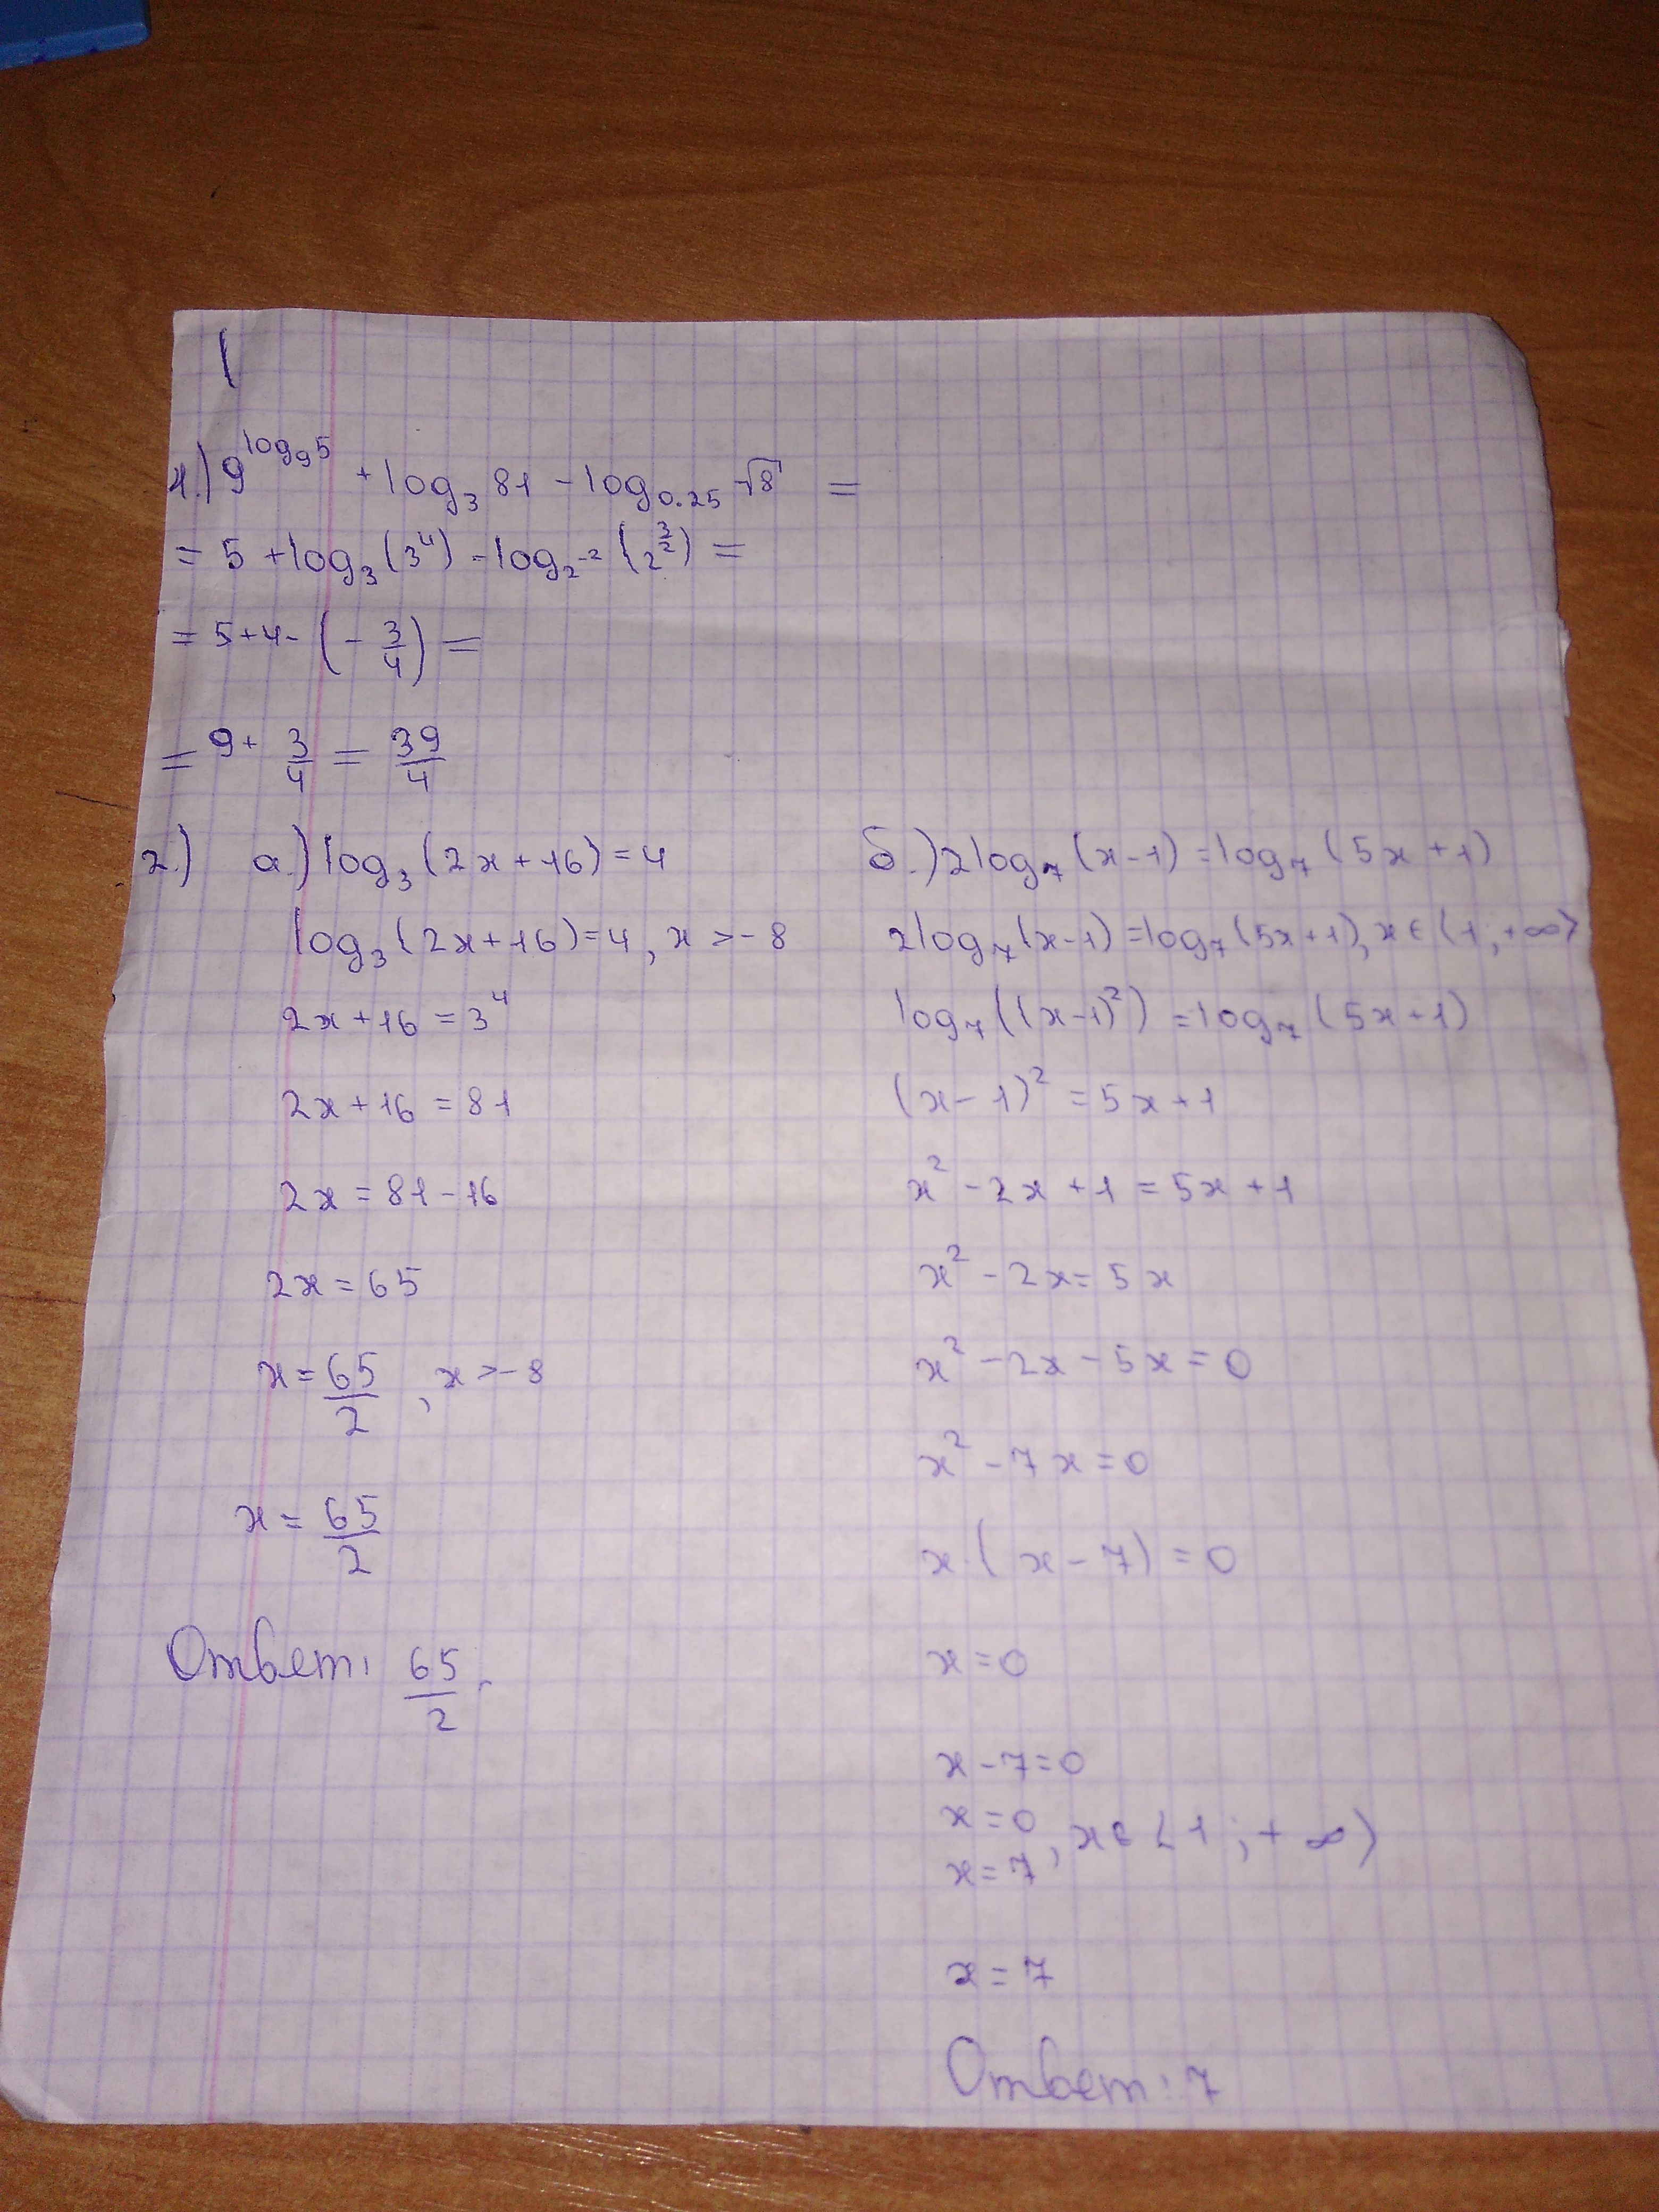 1.) 9^{log_9 5} + log_3 81 - log_{0.25} √8 =
= 5 + log_3 (3^4) - log_{2^{-2}} (2^{3/2}) =
= 5 + 4 - (- 3/4) =
= 9 + 3/4 = 39/4
2.) а.) log_3 (2x + 16) = 4
log_3 (2x + 16) = 4, x > -8
2x + 16 = 3^4
2x + 16 = 81
2x = 81 - 16
2x = 65
x = 65/2, x > -8
x = 65/2
Ответ: 65/2.
б.) 2log_7 (x - 1) = log_7 (5x + 1)
2log_7 (x - 1) = log_7 (5x + 1), x ∈ (1; +∞)
log_7 ((x - 1)^2) = log_7 (5x + 1)
(x - 1)^2 = 5x + 1
x^2 - 2x + 1 = 5x + 1
x^2 - 2x = 5x
x^2 - 2x - 5x = 0
x^2 - 7x = 0
x · (x - 7) = 0
x = 0
x - 7 = 0
x = 0
x = 7, x ∈ (1; +∞)
x = 7
Ответ: 7